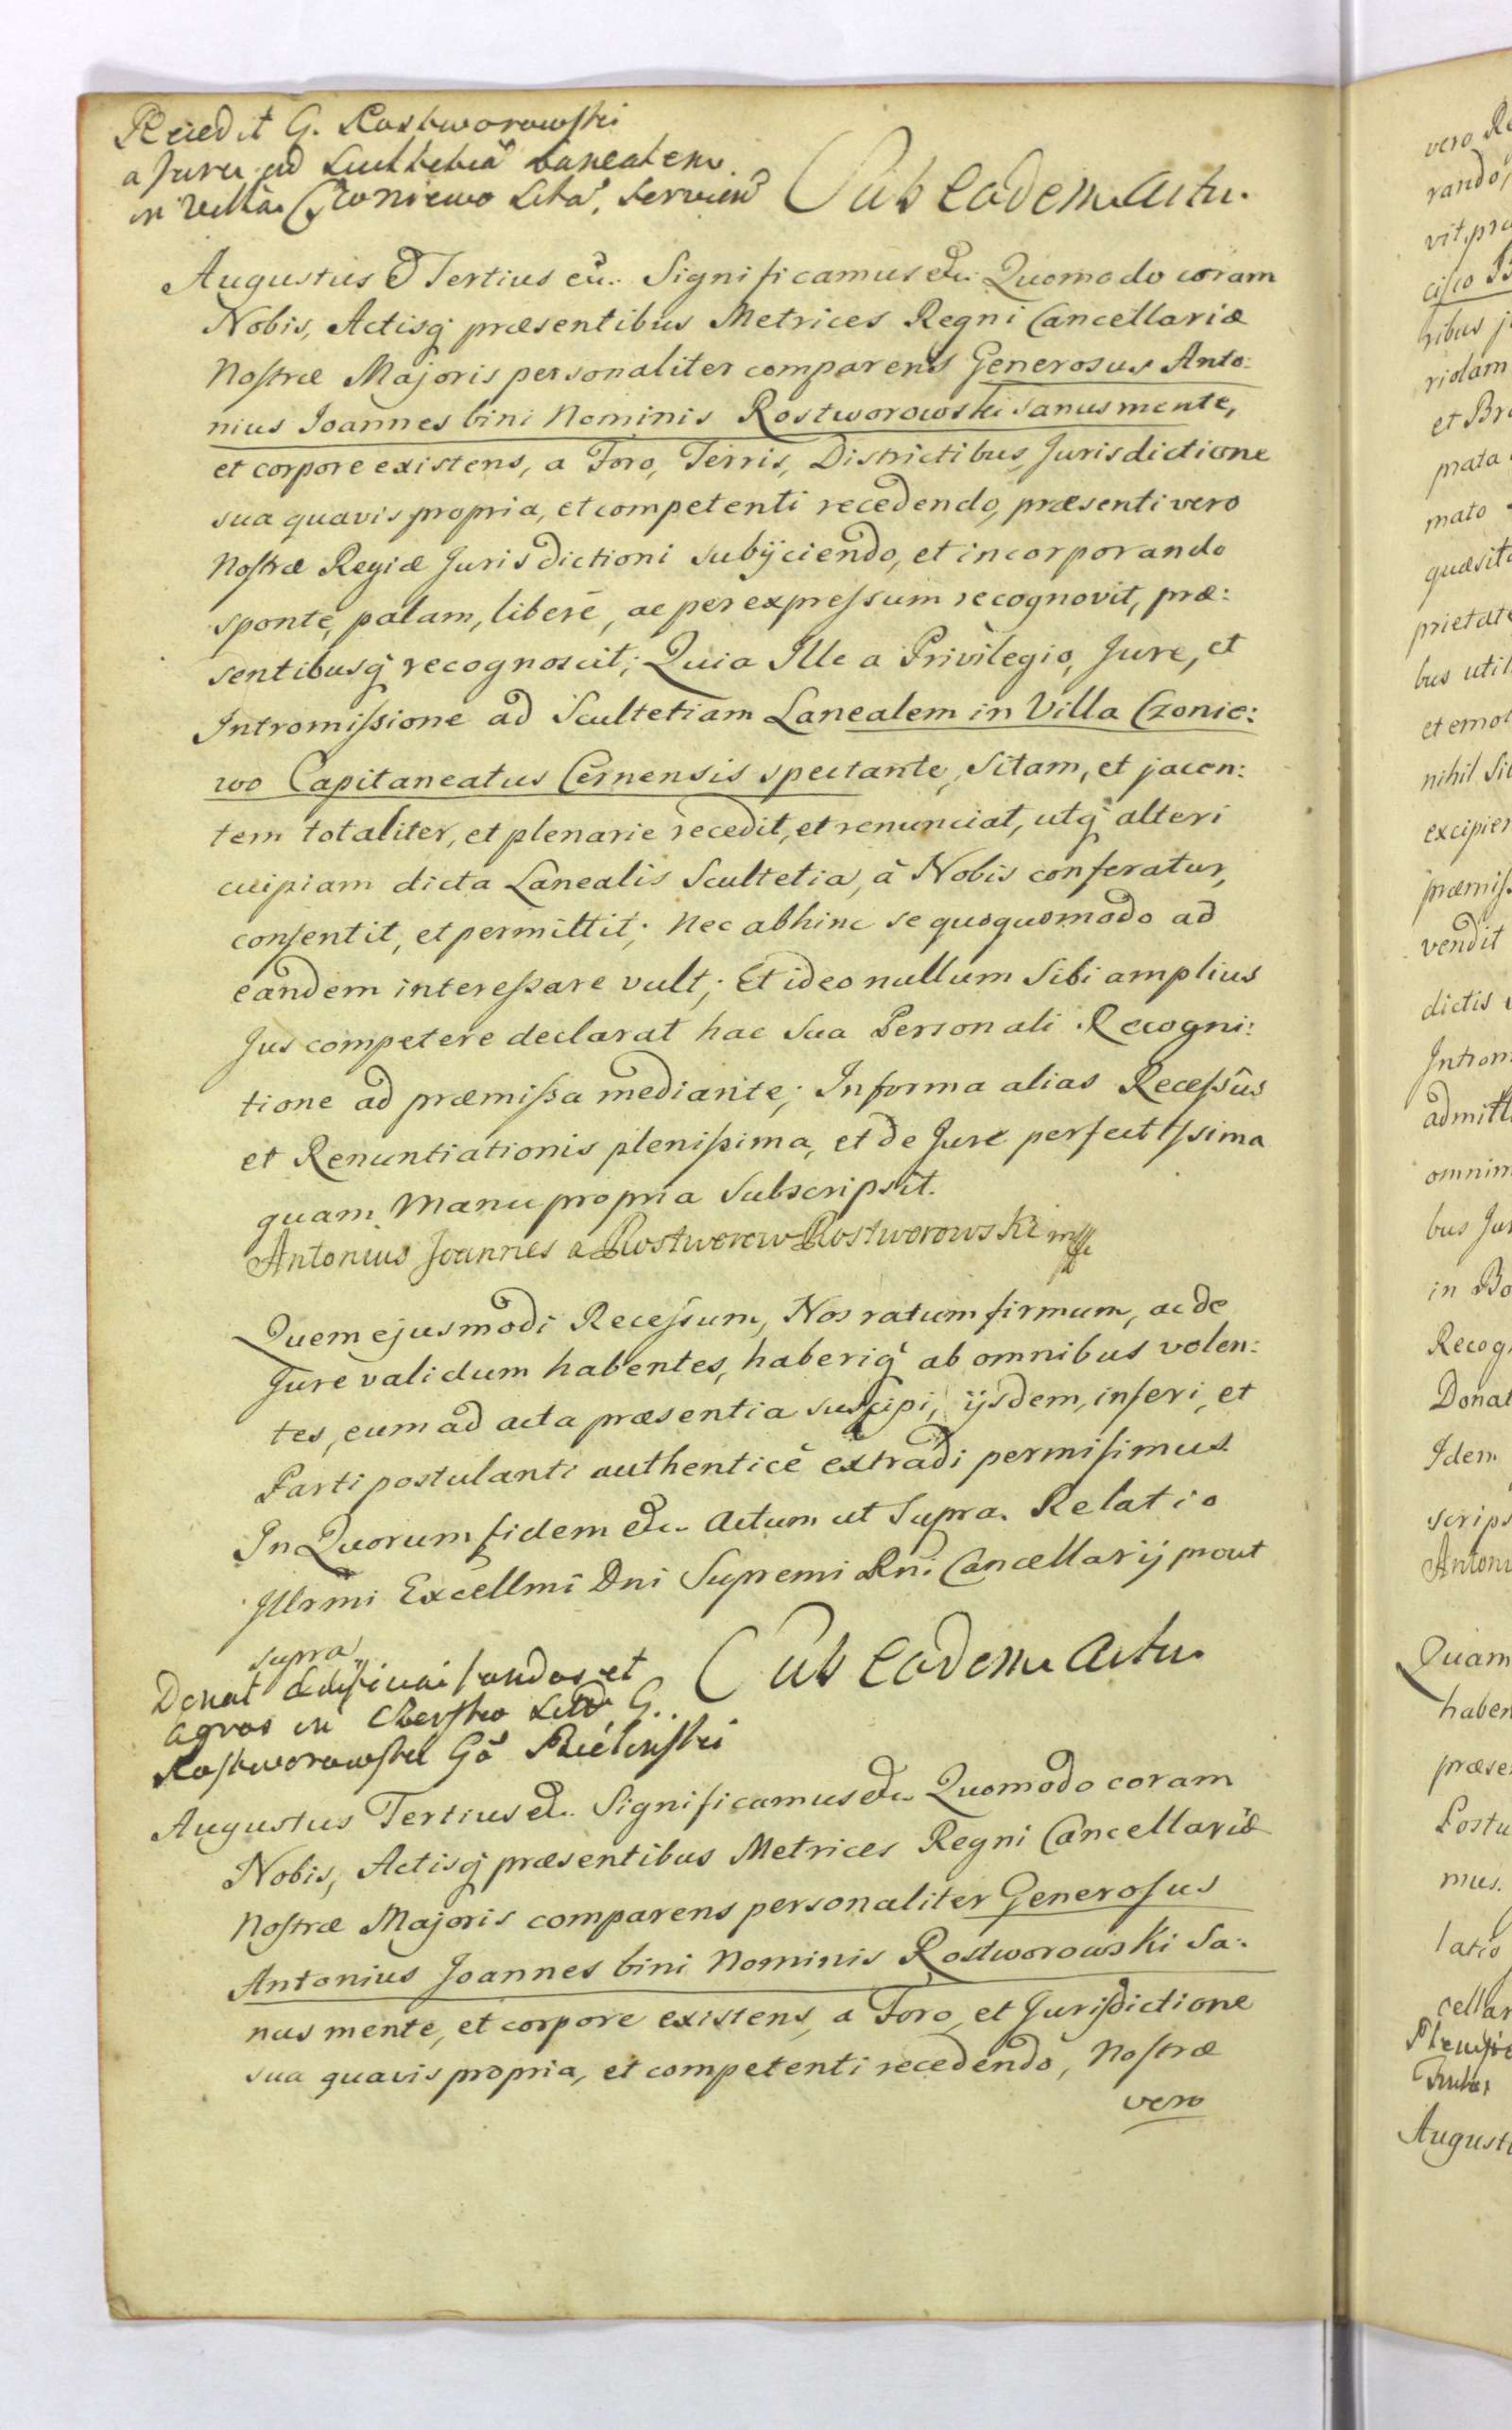 Recedit G. Rostworowski
a Jure ad Scultetiã Lanealem
in Villa Czoniewo Sitã,
Sub Eadem Actu.
Augustus Tertius etc. Significamus etc. Quomodo coram
Nobis, Actisq́ præsentibus Metrices Regni Cancellariæ
Noſtræ Majoris personaliter comparens Generosus Anto:
nius Joannes bini Nominis Rostworowski sanus mente,
et corpore existens, a Foro, Terris, Districtibus, Jurisdictione
sua quavis propria, et competenti recedendo, præsenti vero
Noſtræ Regiæ Jurisdictioni subijciendo, et incorporando
sponte, palam, liberè, ac per expreſsum recognovit, præ:
sentibusq́ recognoscit; Quia Ille a Privilegio, Jure, et
Intromiſsione ad Scultetiam Lanealem in Villa Czonie:
wo Capitaneatus Cernensis spectante, Sitam, et jacen:
tem totaliter, et plenarie recedit, et renunciat, utq́ alteri
cuipiam dicta Lanealis Scultetia, à Nobis conferatur,
conſentit, et permittit; Nec abhinc se quoquomodo ad
eandem intereſsare vult; Et ideo nullum Sibi amplius
Jus competere declarat hac Sua Personali Recogni:
tione ad præmiſsa mediante; In forma alias Receſsûs
et Renuntiationis pleniſsima, et de Jure perfectiſsima
quam Manu propria Subscripsit.
Antonius Joannes a Rostworow Rostworowski mp
Quem ejusmodi Receſsum, Nos ratum firmum, ac de
Jure validum habentes, haberiq́ ab omnibus volen:
tes, eum ad acta præsentia suscipi, ijsdem, inſeri, et
Parti postulanti authenticè extradi permiſimus.
In Quorum fidem etc. Actum ut Supra. Relatio
Jllrmi Excellmi Dni Supremi Rni Cancellarij prout
supra.
Donat fundos et
agros in Chersko G.
Roſtworowſki Gõ Bielinſki
Sub Eadem Actu.
Augustus Tertius etc. Significamus etc. Quomodo coram
Nobis, Actisq́ præsentibus Metrices Regni Cancellariæ
Noſtræ Majoris comparens personaliter Generoſus
Antonius Joannes bini Nominis Rostworowski Sa:
nus mente, et corpore existens, a Foro, et Juriſdictione
sua quavis propria, et competenti recedendo, Noſtræ
vero